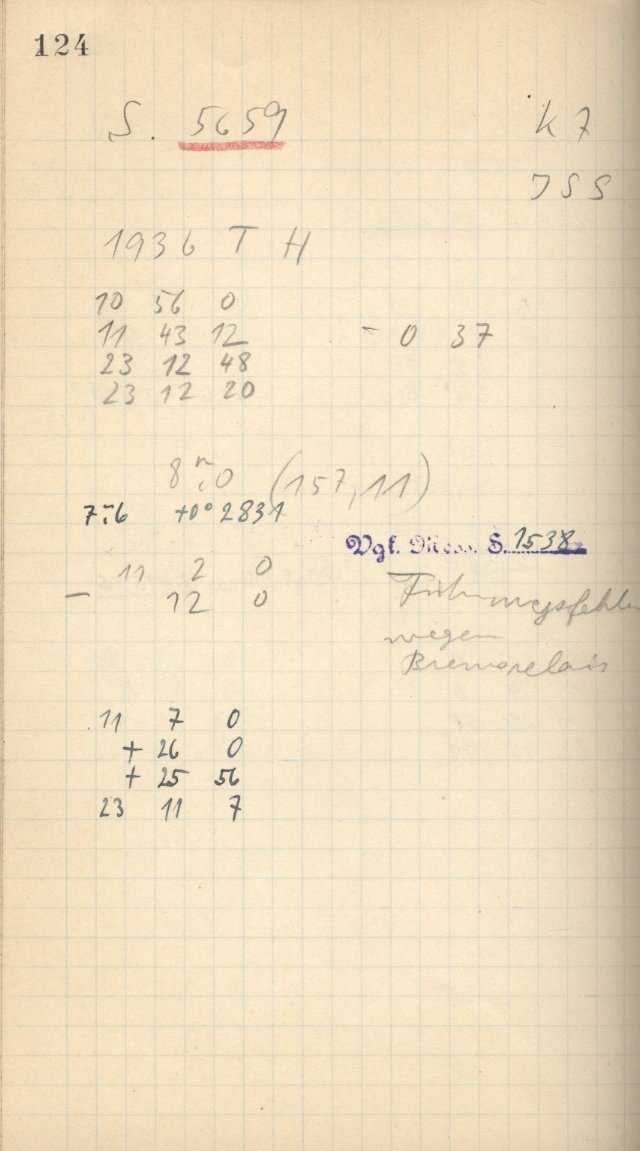 124
S. 5659 K 7
JSS
1936 T H
10 56 0
11 43 12 - 0 37
23 12 48
23 12 20
8ᵐ,0 (157,11)
7ᵐ6 +0° 2831
Vgl. Mess. S. 1538
11 2 0
- 12 0
Führungsfehler
wegen
Bremsrelais
11 7 0
+ 26 0
+ 25 56
23 11 7